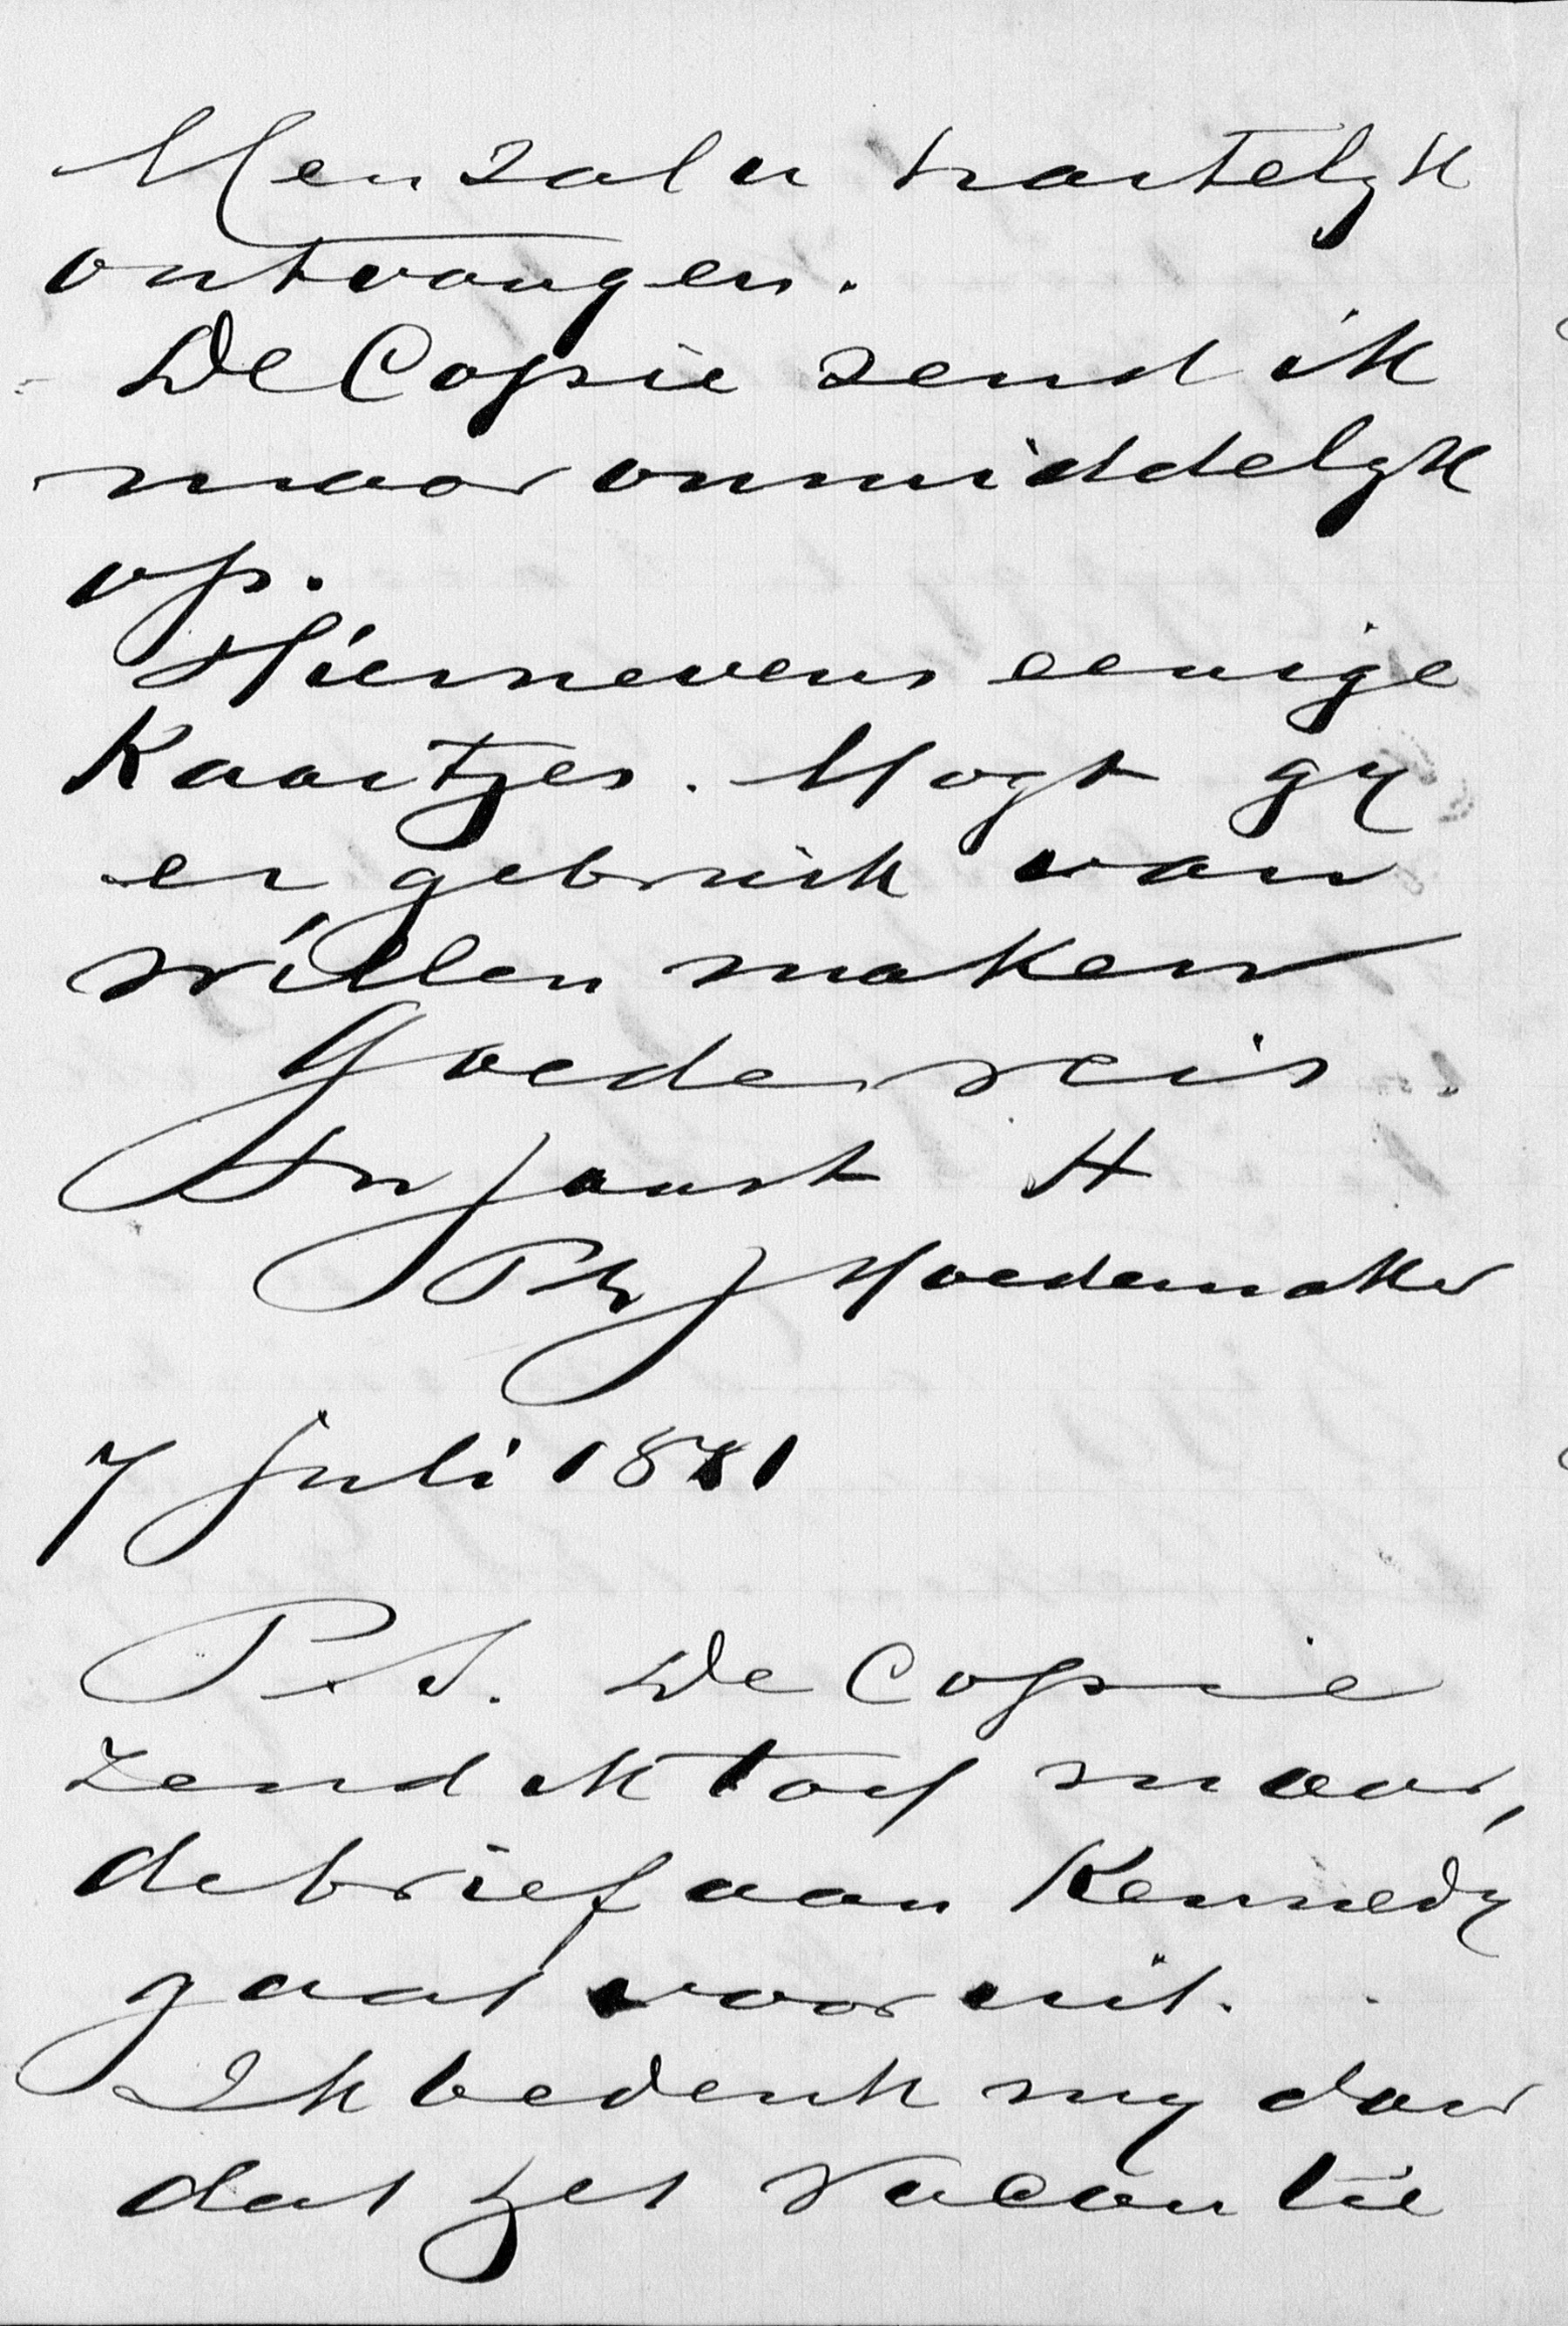 Men zal u hartelyk
ontvangen.
De Copie zend ik
maar onmiddelyk
op.
Hiernevens eenige
Kaartjes. Mogt gy
er gebruik van
willen maken
Goede reis
H
Ph J Hoedemaker
7 Juli 1881
P.S. De Copie
zend ik toch maar,
de brief aan Kennedy
gaat vooruit.
Ik bedenk my daar
dat het Vacantie